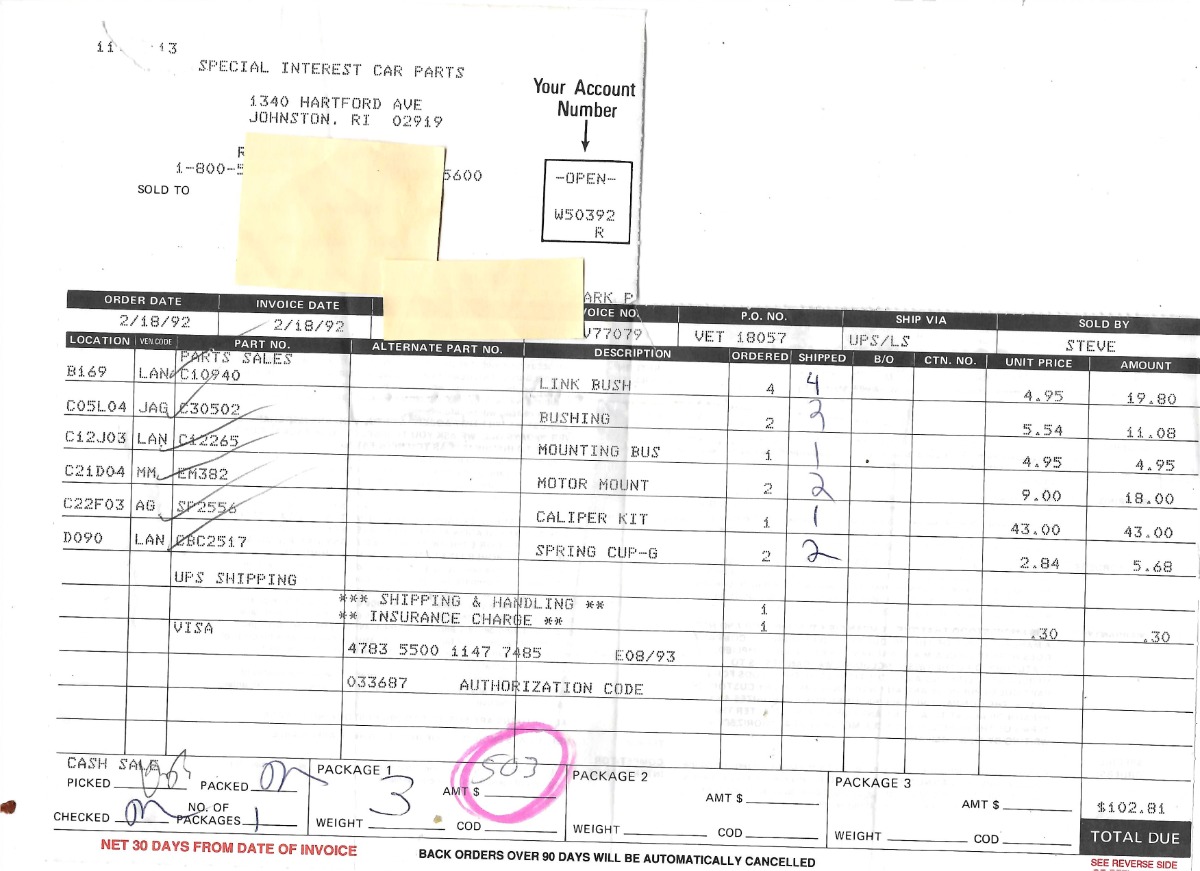 SPECIAL INTEREST CAR PARTS
1340 HARTFORD AVE
JOHNSTON, RI 02919
Your Account
Number
1-800-
5600
SOLD TO
-OPEN-
W50392
R
ARK P
ORDER DATE INVOICE DATE VOICE NO. P.O. NO. SHIP VIA SOLD BY
2/18/92 2/18/92 V77079 VET 18057 UPS/LS STEVE
LOCATION VEN.CODE PART NO. ALTERNATE PART NO. DESCRIPTION ORDERED SHIPPED B/O CTN. NO. UNIT PRICE AMOUNT
PARTS SALES
B169 LAN C10940 LINK BUSH 4 4 4.95 19.80
C05L04 JAG C30502 BUSHING 2 2 5.54 11.08
C12J03 LAN C12265 MOUNTING BUS 1 1 4.95 4.95
C21D04 MM EM382 MOTOR MOUNT 2 2 9.00 18.00
C22F03 AG SP2556 CALIPER KIT 1 1 43.00 43.00
D090 LAN CBC2517 SPRING CUP-G 2 2 2.84 5.68
UPS SHIPPING
*** SHIPPING & HANDLING ** 1
** INSURANCE CHARGE ** 1 .30 .30
VISA
4783 5500 1147 7485 E08/93
033687 AUTHORIZATION CODE
CASH SALE
PICKED PACKED
CHECKED NO. OF PACKAGES 1
PACKAGE 1
3
AMT $ 503
WEIGHT COD
PACKAGE 2
AMT $
WEIGHT COD
PACKAGE 3
AMT $
WEIGHT COD
$102.81
TOTAL DUE
NET 30 DAYS FROM DATE OF INVOICE
BACK ORDERS OVER 90 DAYS WILL BE AUTOMATICALLY CANCELLED
SEE REVERSE SIDE